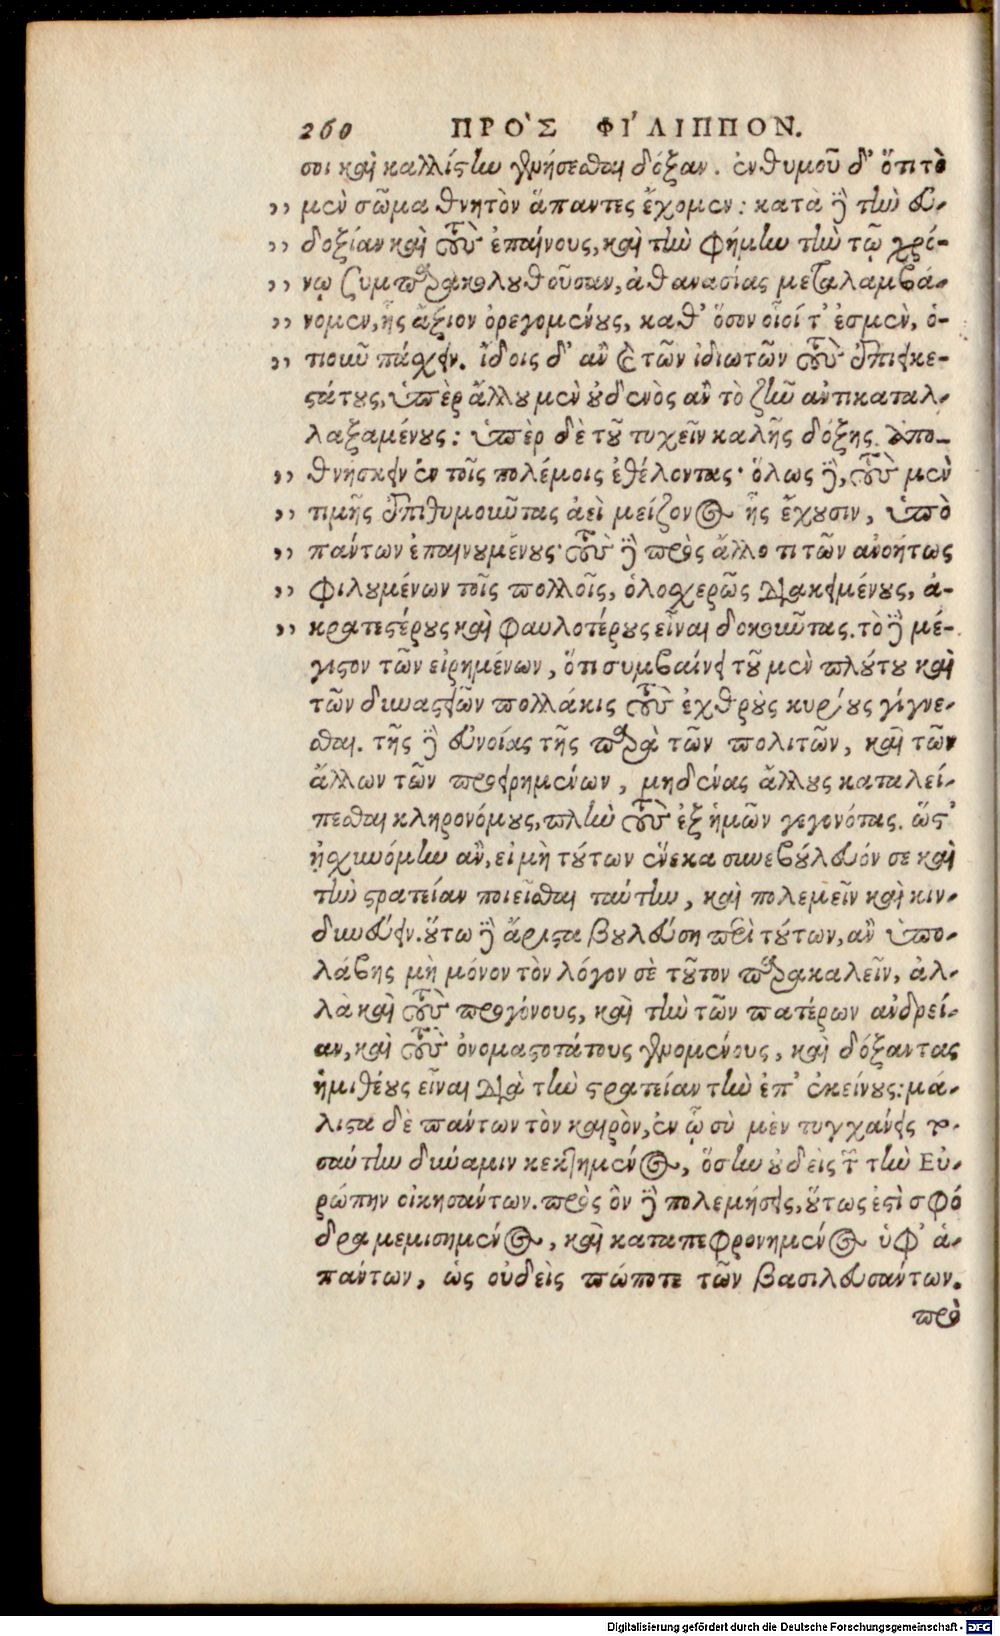 260 ΠΡΟ᾿Σ ΦΙ´ΛΙΠΠΟΝ.
σοι καὶ καλλίστην γενήσεσθαι δόξαν. ἐνθυμοῦ δ᾿ ὅτι τὸ
,, μὲν σῶμα θνητὸν ἅπαντες ἔχομεν: κατὰ δὲ τὴν εὐ-
,, δοξίαν καὶ τοὺς ἐπαίνους, καὶ τὴν φήμην τὴν τῷ χρό-
,, νῳ συμπαρακολουθοῦσαν, ἀθανασίας μεταλαμβά-
,, νομεν, ἧς ἄξιον ὀρεγομένους, καθ᾿ ὅσον οἷοί τ᾿ ἐσμὲν, ὁ-
,, τιοῦν πάσχειν. ἴδοις δ᾿ ἂν καὶ τῶν ἰδιωτῶν τοὺς ἐπιεικε-
στάτους, ὑπὲρ ἄλλου μὲν οὐδενὸς ἂν τὸ ζῆν ἀντικαταλ-
λαξαμένους: ὑπὲρ δὲ τοῦ τυχεῖν καλῆς δόξης ἀπο-
,, θνήσκειν ἐν τοῖς πολέμοις ἐθέλοντας· ὅλως δὲ, τοὺς μὲν
,, τιμῆς ἐπιθυμοῦντας ἀεὶ μείζονος ἧς ἔχουσιν, ὑπὸ
,, πάντων ἐπαινουμένους· τοὺς δὲ πρὸς ἄλλο τι τῶν ἀνοήτως
,, φιλουμένων τοῖς πολλοῖς, ὁλοσχερῶς διακειμένους, ἀ-
,, κρατεστέρους καὶ φαυλοτέρους εἶναι δοκοῦντας. τὸ δὲ μέ-
γιστον τῶν εἰρημένων, ὅτι συμβαίνει τοῦ μὲν πλούτου καὶ
τῶν δυναστειῶν πολλάκις τοὺς ἐχθροὺς κυρίους γίγνε-
σθαι. τῆς δὲ εὐνοίας τῆς παρὰ τῶν πολιτῶν, καὶ τῶν
ἄλλων τῶν προειρημένων, μηδένας ἄλλους καταλεί-
πεσθαι κληρονόμους, πλὴν τοὺς ἐξ ἡμῶν γεγονότας. ὥστ᾿
ᾐσχυνόμην ἂν, εἰ μὴ τούτων ἕνεκα συνεβούλευόν σε καὶ
τὴν στρατείαν ποιεῖσθαι ταύτην, καὶ πολεμεῖν καὶ κιν-
δυνεύειν. οὕτω δὲ ἄριστα βουλεύσῃ περὶ τούτων, ἂν ὑπο-
λάβῃς μὴ μόνον τὸν λόγον σὲ τοῦτον παρακαλεῖν, ἀλ-
λὰ καὶ τοὺς προγόνους, καὶ τὴν τῶν πατέρων ἀνδρεί-
αν, καὶ τοὺς ὀνομαστοτάτους γενομένους, καὶ δόξαντας
ἡμιθέους εἶναι διὰ τὴν στρατείαν τὴν ἐπ᾿ ἐκείνους: μά-
λιστα δὲ πάντων τὸν καιρὸν, ἐν ᾧ σὺ μὲν τυγχάνεις το-
σαύτην δύναμιν κεκτημένος, ὅσην οὐδεὶς τῶν τὴν Εὐ-
ρώπην οἰκησάντων. πρὸς ὃν δὲ πολεμήσεις, οὕτως ἐστὶ σφό
δρα μεμισημένος, καὶ καταπεφρονημένος ὑφ᾿ ἁ-
πάντων, ὡς οὐδεὶς πώποτε τῶν βασιλευσάντων.
πρὸ
Digitalisierung gefördert durch die Deutsche Forschungsgemeinschaft - DFG